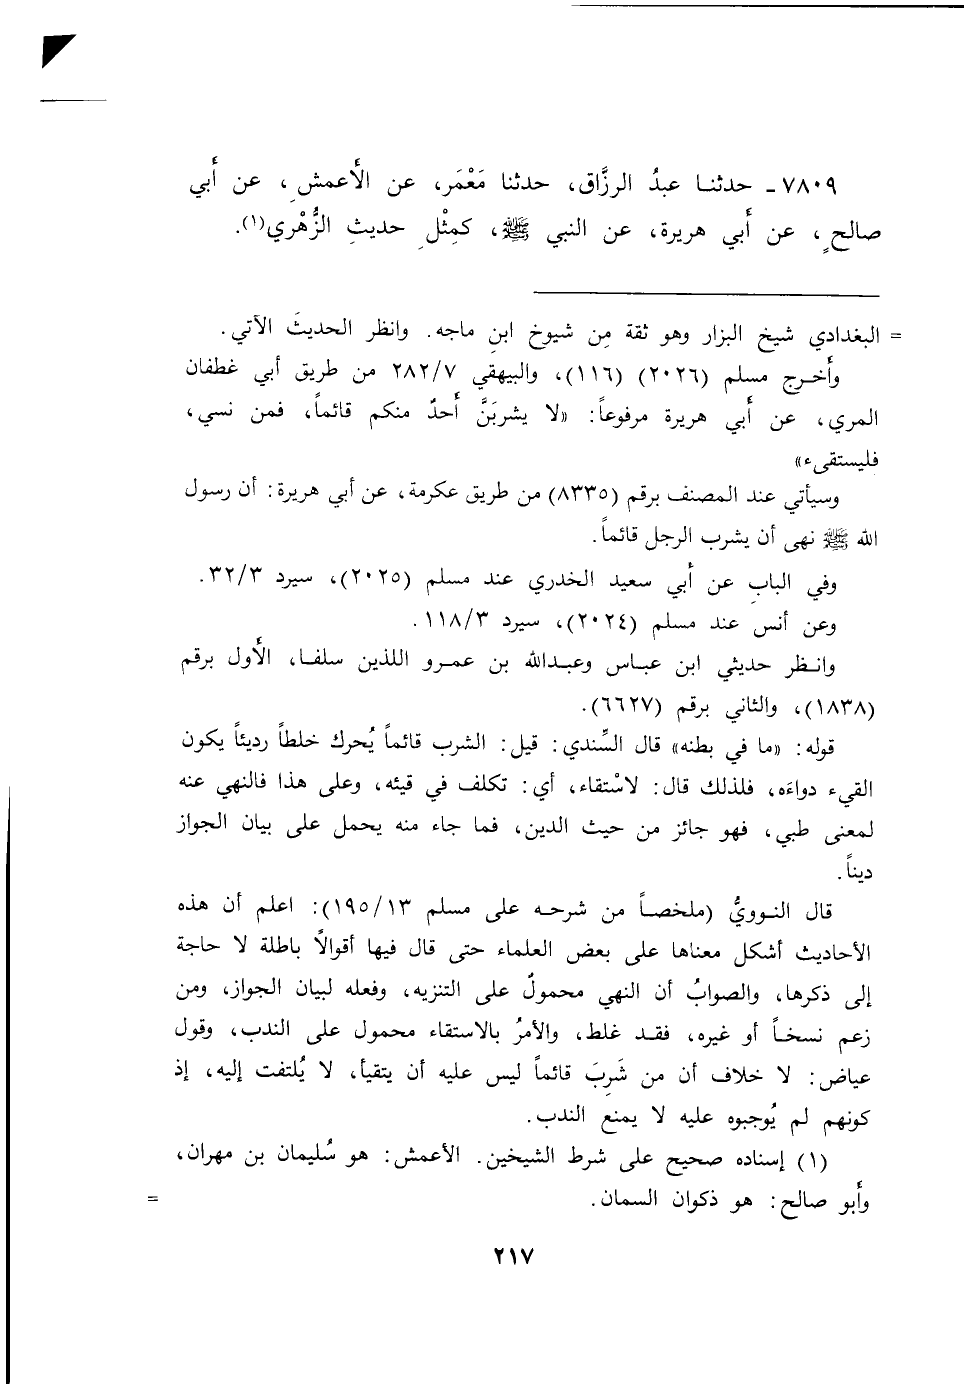 ٧٨٠٩ـ حدثنـا عبدُ الرزَّاق، حدثنا مَعْمَر، عن الأَعمشِ، عن أَبي
صالحٍ، عن أَبي هريرة، عن النبي ﷺ، كمِثْلِ حديثِ الزُّهْري(١).
= البغدادي شيخ البزار وهو ثقة مِن شيوخ ابنِ ماجه. وانظر الحديثَ الآتي.
وأَخـرج مسلم (٢٠٢٦) (١١٦)، والبيهقي ٢٨٢/٧ من طريق أبي غطفان
المري، عن أَبي هريرة مرفوعاً: «لا يشربَنَّ أَحدٌ منكم قائماً، فمن نسي،
فليستقىء»
وسيأتي عند المصنف برقم (٨٣٣٥) من طريق عكرمة، عن أبي هريرة: أن رسول
الله ﷺ نهى أن يشرب الرجل قائماً.
وفي البابِ عن أَبي سعيد الخدري عند مسلم (٢٠٢٥)، سيرد ٣٢/٣.
وعن أنس عند مسلم (٢٠٢٤)، سيرد ١١٨/٣.
وانـظر حديثي ابن عبـاس وعبـدالله بن عمـرو اللذين سلفـا، الأَول برقم
(١٨٣٨)، والثاني برقم (٦٦٢٧).
قوله: «ما في بطنه» قال السِّندي: قيل: الشرب قائماً يُحرك خلطاً رديئاً يكون
القيء دواءَه، فلذلك قال: لاسْتقاء، أي: تكلف في قيئه، وعلى هذا فالنهي عنه
لمعنى طبي، فهو جائز من حيث الدين، فما جاء منه يحمل على بيان الجواز
ديناً.
قال النـوويُّ (ملخصـاً من شرحـه على مسلم ١٩٥/١٣): اعلم أن هذه
الأحاديث أشكل معناها على بعض العلماء حتى قال فيها أقوالاً باطلة لا حاجة
إلى ذكرها، والصوابُ أن النهي محمولٌ على التنزيه، وفعله لبيان الجواز، ومن
زعم نسخـاً أو غيره، فقـد غلط، والأمرُ بالاستقاء محمول على الندب، وقول
عياض: لا خلاف أن من شَرِبَ قائماً ليس عليه أن يتقيأ، لا يُلتفت إليه، إذ
كونهم لم يُوجبوه عليه لا يمنع الندب.
(١) إسناده صحيح على شرط الشيخين. الأعمش: هو سُليمان بن مهران،
وأَبو صالح: هو ذكوان السمان. =
٢١٧